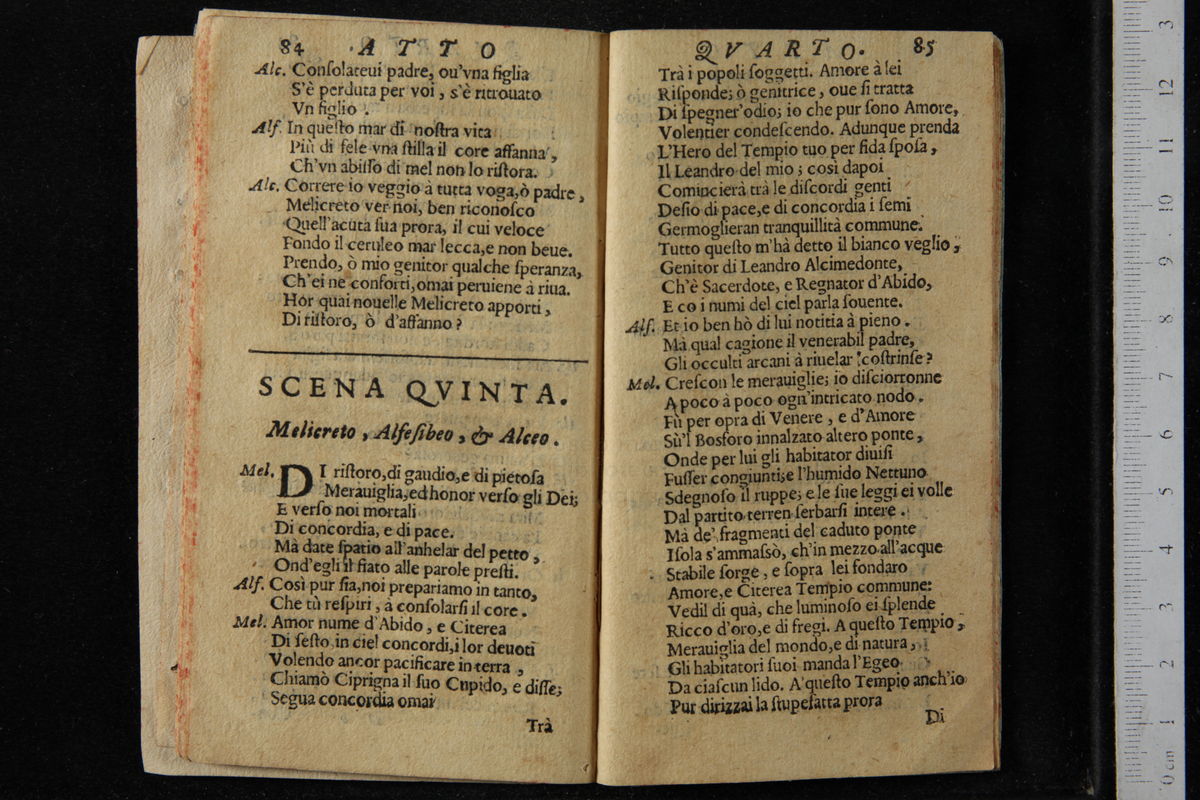 84 ATTO
Alc. Conſolateui padre, ou'vna figlia
S'è perduta per voi, s'è ritrouato
Vn figlio.
Alf. In queſto mar di noſtra vita
Più di fele vna ſtilla il core affanna,
Ch'vn abiſſo di mel non lo riſtora.
Alc. Correre io veggio à tutta voga, ò padre,
Melicreto ver noi, ben riconoſco
Quell'acuta ſua prora, il cui veloce
Fondo il ceruleo mar lecca, e non beue.
Prendo, ò mio genitor qualche ſperanza,
Ch'ei ne conforti, omai peruiene à riua.
Hor quai nouelle Melicreto apporti,
Di riſtoro, ò d'affanno?
SCENA QVINTA.
Melicreto, Alfeſibeo, & Alceo.
Mel. DI riſtoro, di gaudio, e di pietoſa
Merauiglia, ed honor verſo gli Dei;
E verſo noi mortali
Di concordia, e di pace.
Mà date ſpatio all'anhelar del petto,
Ond'egli il fiato alle parole preſti.
Alf. Così pur ſia, noi prepariamo in tanto,
Che tù reſpiri, à conſolarſi il core.
Mel. Amor nume d'Abido, e Citerea
Di ſeſto in ciel concordi, i lor deuoti
Volendo ancor pacificare in terra,
Chiamò Ciprigna il ſuo Cupido, e diſſe;
Segua concordia omai
Trà
QVARTO. 85
Trà i popoli ſoggetti. Amore à lei
Riſponde; ò genitrice, oue ſi tratta
Di ſpegner'odio; io che pur ſono Amore,
Volentier condeſcendo. Adunque prenda
L'Hero del Tempio tuo per fida ſpoſa,
Il Leandro del mio; così dapoi
Comincierà trà le diſcordi genti
Deſio di pace, e di concordia i ſemi
Germoglieran tranquillità commune.
Tutto queſto m'hà detto il bianco veglio,
Genitor di Leandro Alcimedonte,
Ch'è Sacerdote, e Regnator d'Abido,
E co i numi del ciel parla ſouente.
Alf. Et io ben hò di lui notitia à pieno.
Mà qual cagione il venerabil padre,
Gli occulti arcani à riuelar coſtrinſe?
Mel. Creſcon le merauiglie; io diſciorronne
A poco à poco ogn'intricato nodo.
Fù per opra di Venere, e d'Amore
Sù'l Bosforo innalzato altero ponte,
Onde per lui gli habitator diuiſi
Fuſſer congiunti; e l'humido Nettuno
Sdegnoſo il ruppe; e le ſue leggi ei volle
Dal partito terren ſerbarſi intere.
Mà de' fragmenti del caduto ponte
Iſola s'ammaſsò, ch'in mezzo all'acque
Stabile ſorge, e ſopra lei fondaro
Amore, e Citerea Tempio commune:
Vedil di quà, che luminoſo ei ſplende
Ricco d'oro, e di fregi. A queſto Tempio,
Merauiglia del mondo, e di natura,
Gli habitatori ſuoi manda l'Egeo
Da ciaſcun lido. A'queſto Tempio anch'io
Pur dirizzai la ſtupefatta prora
Di